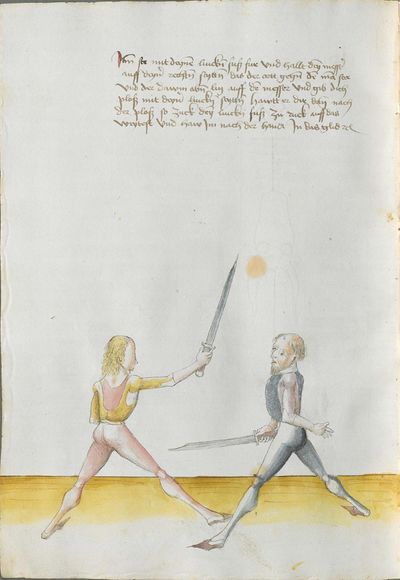 Jtm setz mit deynē lincken fuß fur Vnd halt dey messer
auff deyner rechten seytten das der ort gegen dē man ste
Vnd der dawm aben lig auff dē messer Vnd gib dich
ploß mit deyner lincken seytten hawt er dir den nach
der ploß so zuck den lincken fuß zu ruck auff das
weytest Vnd haw im nach der hant In das glid rc